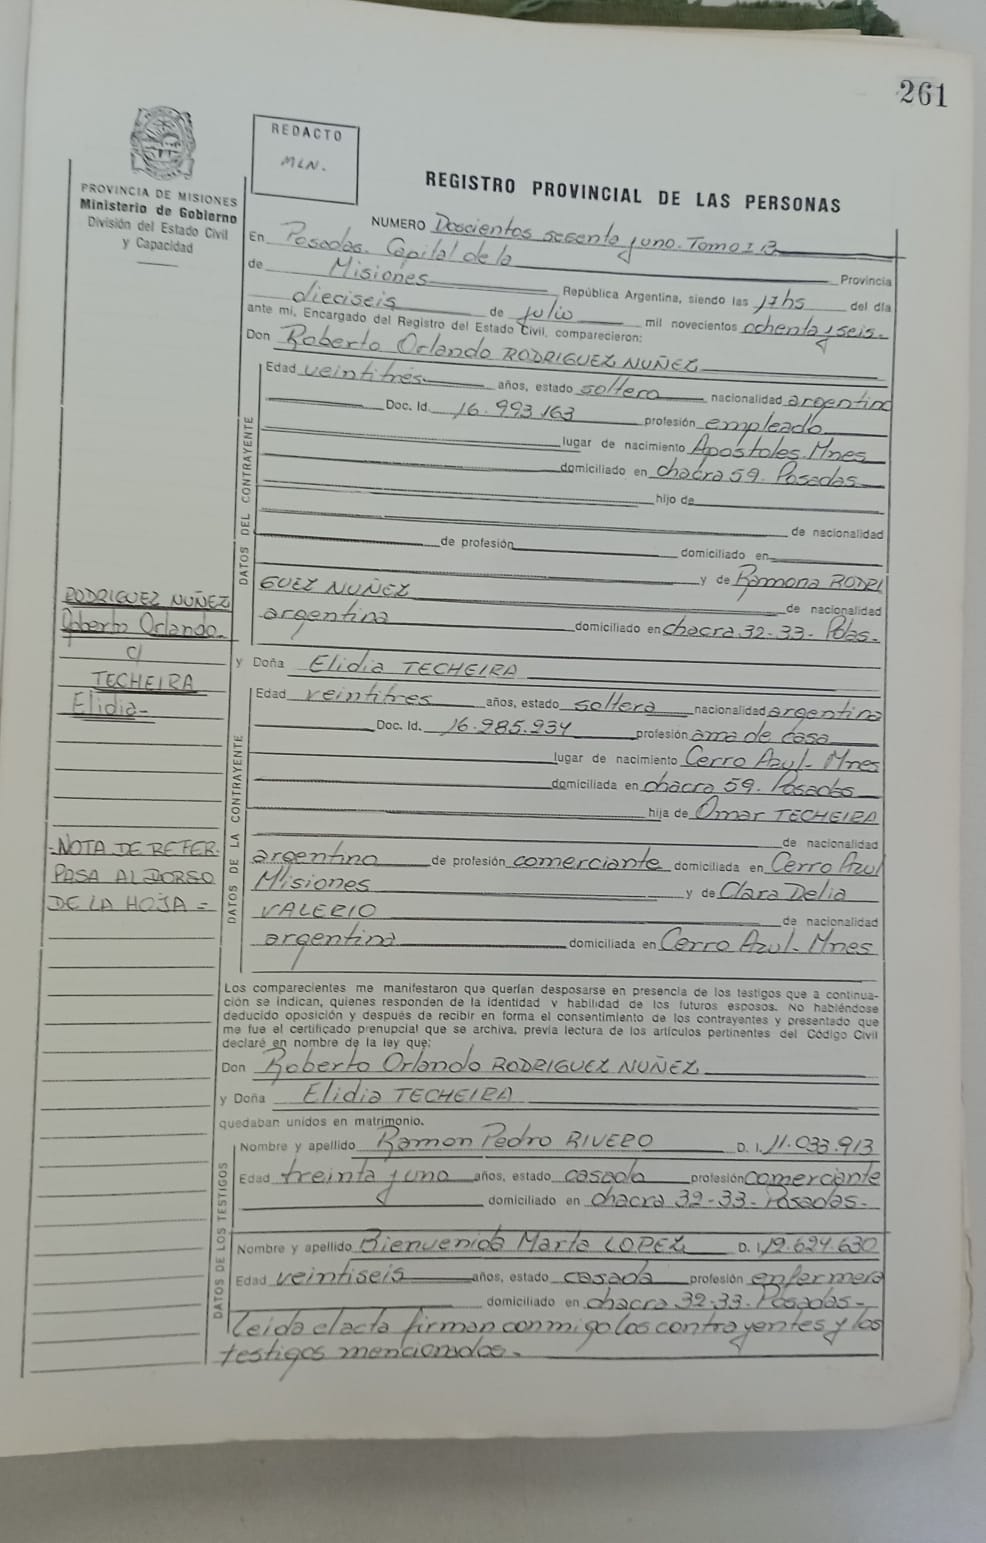 261
REDACTO
MLN.
PROVINCIA DE MISIONES
Ministerio de Gobierno
División del Estado Civil
y Capacidad
REGISTRO PROVINCIAL DE LAS PERSONAS
NUMERO Doscientos sesenta y uno. Tomo I B
En Posadas. Capital de la Provincia
de Misiones República Argentina, siendo las 17hs del día
dieciseis de julio mil novecientos ochenta y seis.
ante mí, Encargado del Registro del Estado Civil, comparecieron:
Don Roberto Orlando RODRIGUEZ NUÑEZ
DATOS DEL CONTRAYENTE
Edad veintitres años, estado soltero nacionalidad argentino
Doc. Id. 16.993.163 profesión empleado
lugar de nacimiento Apóstoles. Mnes
domiciliado en chacra 59. Posadas
hijo de
de nacionalidad
de profesión domiciliado en
y de Ramona RODRI
GUEZ NUÑEZ de nacionalidad
argentina domiciliado en chacra 32-33- Pdas.
RODRIGUEZ NUÑEZ
Roberto Orlando.
c/
TECHEIRA
Elidia-
y Doña Elidia TECHEIRA
DATOS DE LA CONTRAYENTE
Edad veintitres años, estado soltera nacionalidad argentina
Doc. Id. 16.985.934 profesión ama de casa
lugar de nacimiento Cerro Azul- Mnes
domiciliada en chacra 59. Posadas
hija de Omar TECHEIRA
de nacionalidad
argentino de profesión comerciante domiciliada en Cerro Azul
Misiones y de Clara Delia
VALERIO de nacionalidad
argentina domiciliada en Cerro Azul- Mnes
-NOTA DE REFER.
PASA AL DORSO
DE LA HOJA =
Los comparecientes me manifestaron que querían desposarse en presencia de los testigos que a continua-
ción se indican, quienes responden de la identidad y habilidad de los futuros esposos. No habiéndose
deducido oposición y después de recibir en forma el consentimiento de los contrayentes y presentado que
me fue el certificado prenupcial que se archiva, previa lectura de los artículos pertinentes del Código Civil
declaré en nombre de la ley que:
Don Roberto Orlando RODRIGUEZ NUÑEZ
y Doña Elidia TECHEIRA
quedaban unidos en matrimonio.
DATOS DE LOS TESTIGOS
Nombre y apellido Ramon Pedro RIVERO D. I. 11.033.913
Edad treinta y uno años, estado casado profesión comerciante
domiciliado en chacra 32-33- Posadas-
Nombre y apellido Bienvenida Marta LOPEZ D. I. 12.624.630
Edad veintiseis años, estado casada profesión enfermera
domiciliado en chacra 32-33. Posadas-
Leida el acta firman conmigo los contrayentes y los
testigos mencionados.